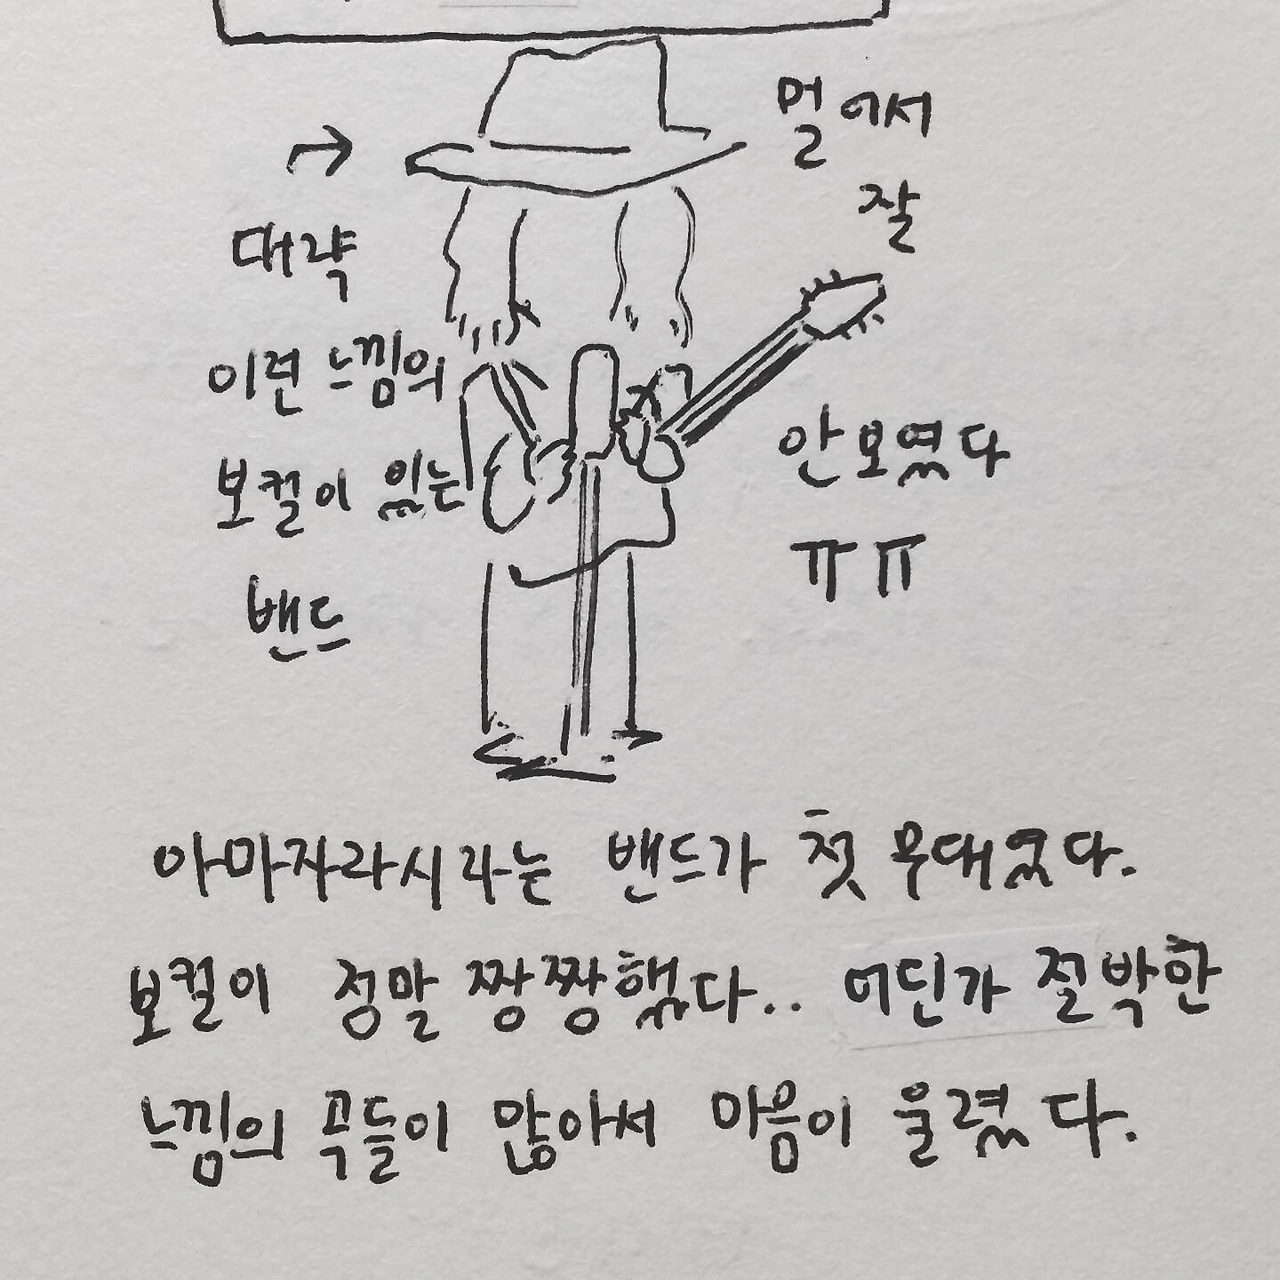 →
대략
이런 느낌의
보컬이 있는
밴드
멀어서
잘
안보였다
ㅠㅠ
아마자라시라는 밴드가 첫 무대였다.
보컬이 정말 짱짱했다.. 어딘가 절박한
느낌의 곡들이 많아서 마음이 울렸다.